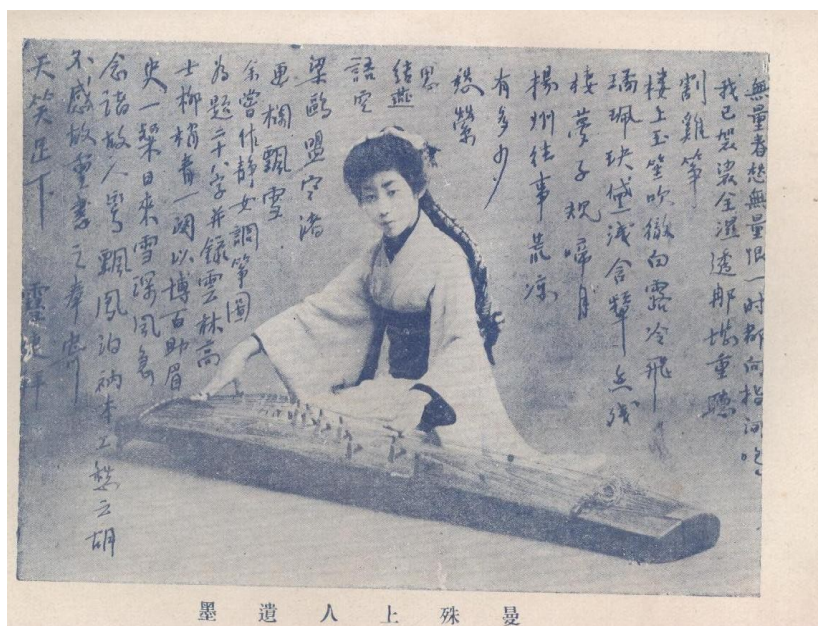 無量春愁無量恨一时都向指间鳴
我已袈裟全濕透那堪重聽
割雞箏
樓上玉笙吹徹白露冷飛
瓊珮玦黛淺含顰香残
棲夢子規啼月
楊州往事荒凉
有多少
愁縈
思
結燕
語空
梁鷗盟寒渚
画欄飄雪
余嘗作靜女調箏圖
為題二十八字并錄雲林高
士柳梢青一闋以博百助眉
史一粲日來雪深風急
念諸故人鸞飄鳳泊衲本工愁云胡
不感故重書之奉寄
天笑足下
曼殊上人遺墨